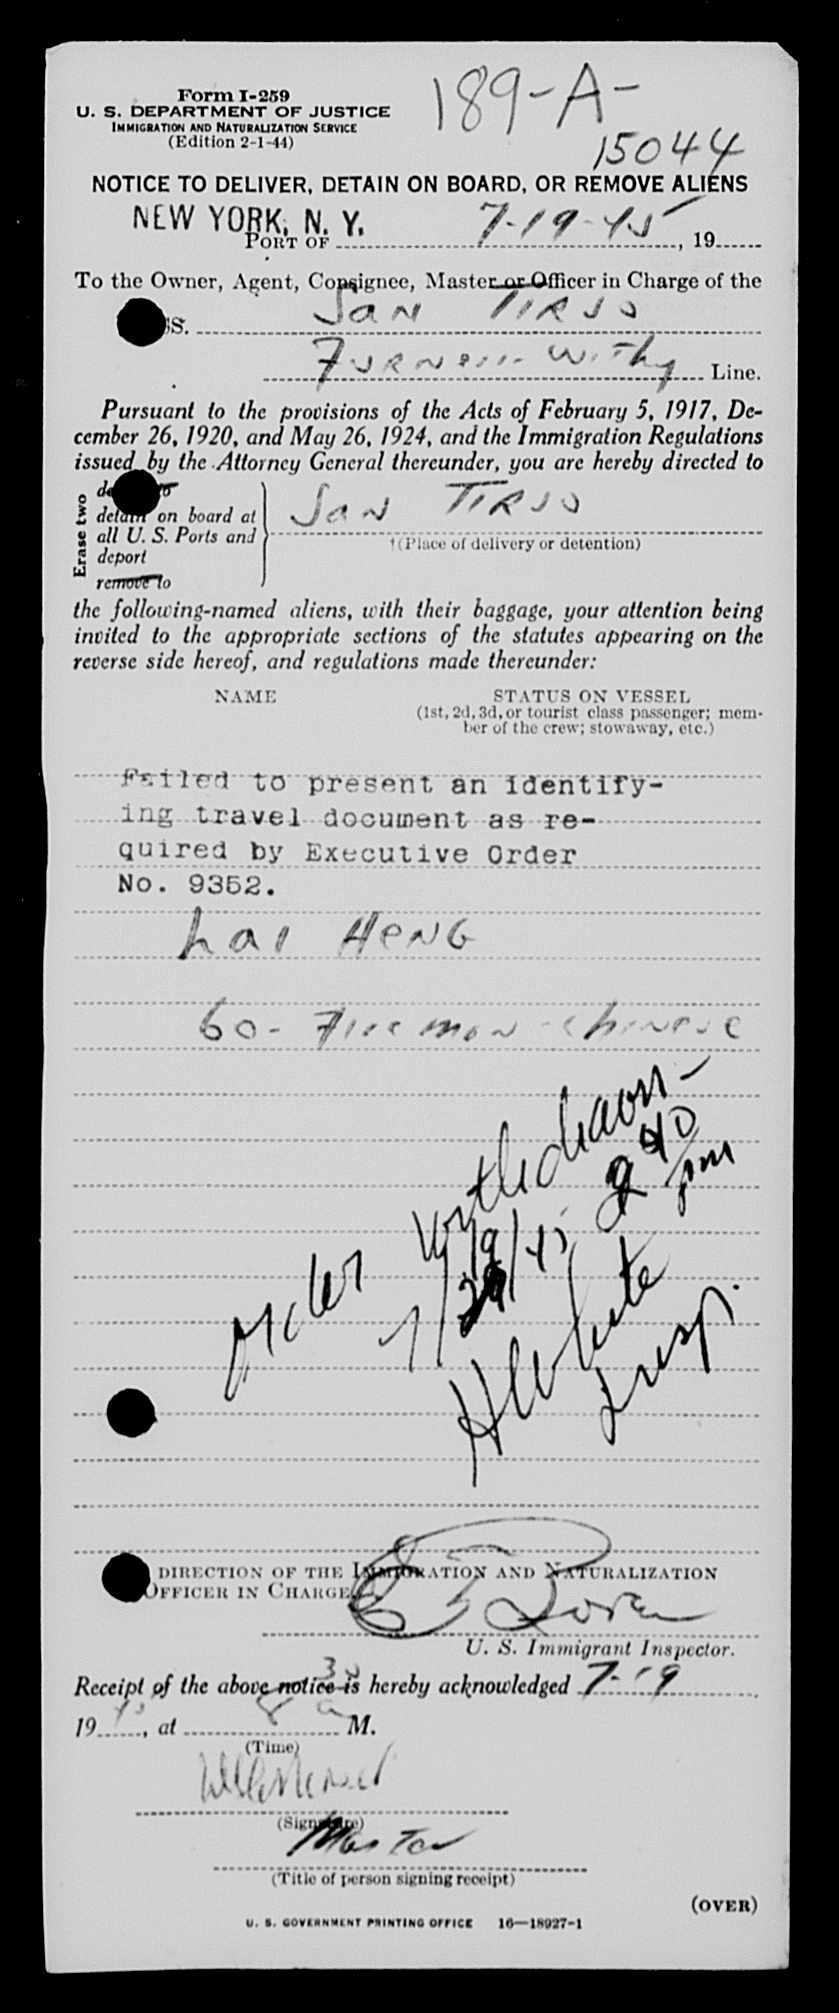 Form I-259
U. S. DEPARTMENT OF JUSTICE
IMMIGRATION AND NATURALIZATION SERVICE
(Edition 2-1-44)
189-A-
15044
NOTICE TO DELIVER, DETAIN ON BOARD, OR REMOVE ALIENS
NEW YORK, N. Y.
PORT OF 7-19-45, 19
To the Owner, Agent, Consignee, Master or Officer in Charge of the
SS. San Tirso
Furness Withy Line.
Pursuant to the provisions of the Acts of February 5, 1917, De-
cember 26, 1920, and May 26, 1924, and the Immigration Regulations
issued by the Attorney General thereunder, you are hereby directed to
Erase two
detain on board at
all U. S. Ports and
deport
remove to
San Tirso
†(Place of delivery or detention)
the following-named aliens, with their baggage, your attention being
invited to the appropriate sections of the statutes appearing on the
reverse side hereof, and regulations made thereunder:
NAME STATUS ON VESSEL
(1st, 2d, 3d, or tourist class passenger; mem-
ber of the crew; stowaway, etc.)
Failed to present an identify-
ing travel document as re-
quired by Executive Order
No. 9352.
Lai HENG
60- Fireman - Chinese
Order withdrawn -
7/19/45 940 pm
H White
Insp.
DIRECTION OF THE IMMIGRATION AND NATURALIZATION
OFFICER IN CHARGE
U. S. Immigrant Inspector.
Receipt of the above notice is hereby acknowledged 7-19
1945, at 8 30 a M.
(Time)
(Signature)
Master
(Title of person signing receipt)
(OVER)
U. S. GOVERNMENT PRINTING OFFICE 16—18927-1